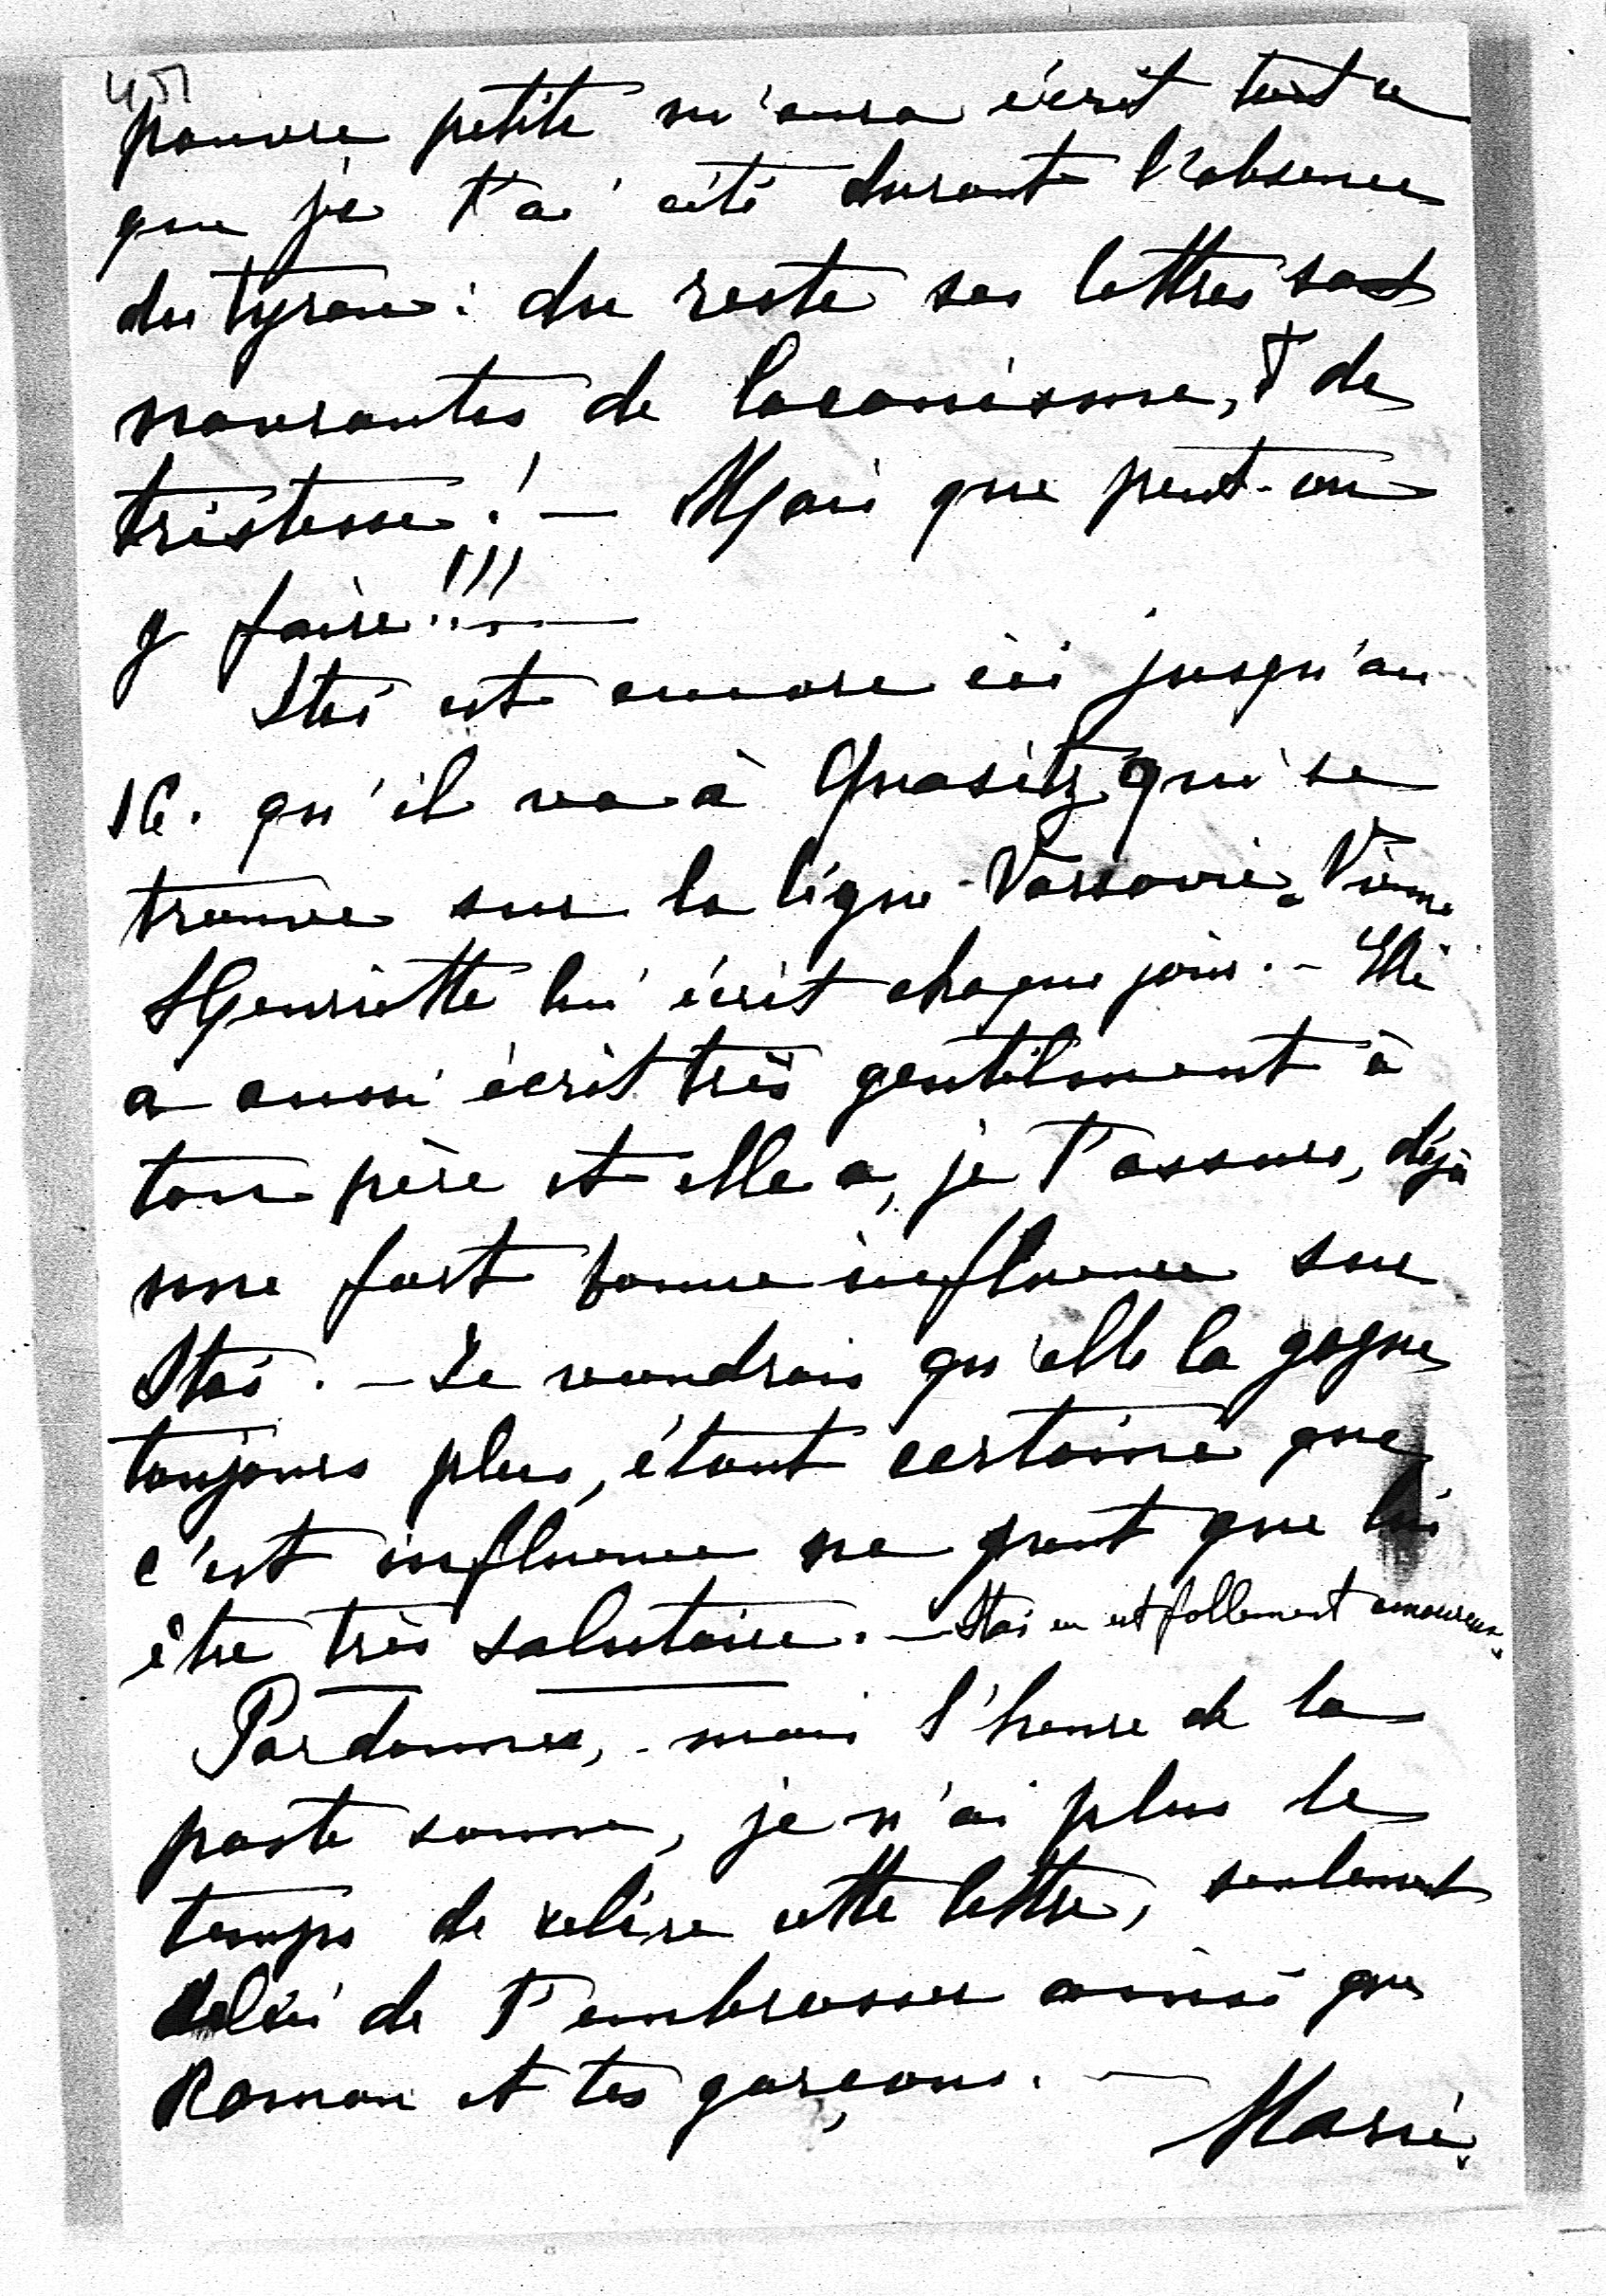 451
pauvre petite m'aura écrit tout ce
que je t'ai cité durant l'absence
du tyran : du reste ses lettres sont
navrantes de laconisme, & de
tristesse ! — Mais que peut-on
y faire !!! —
Staś est encore ici jusqu'au
16. qu'il va à qui se
trouve sur la ligne Varsovie-Vienne
Henriette lui écrit chaque jour. — Elle
a aussi écrit très gentilment à
ton père et elle a, je t'assure, déjà
une fort bonne influence sur
Staś. — Je voudrais qu'elle la gagne
toujours plus, étant certaine que
c'est influence ne peut que lui
être très salutaire. — Staś en est follement amoureux.
Pardonnez, mais l'heure de la
poste sonne, je n'ai plus le
temps de relire cette lettre, seulement
celui de t'embrasser ainsi que
Roman et tes garçons. —
Marie.